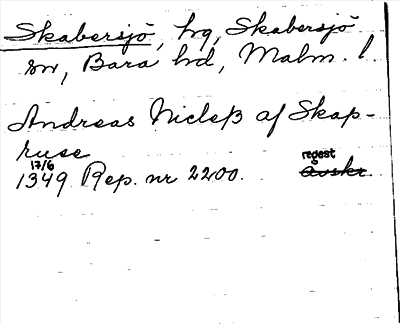 Skabersjö, hg, Skabersjö
sn, Bara hd, Malm. l.
Andreas Niclesß af Skap-
ruse
17/6
1349 Rep. nr 2200. regest
avskr.